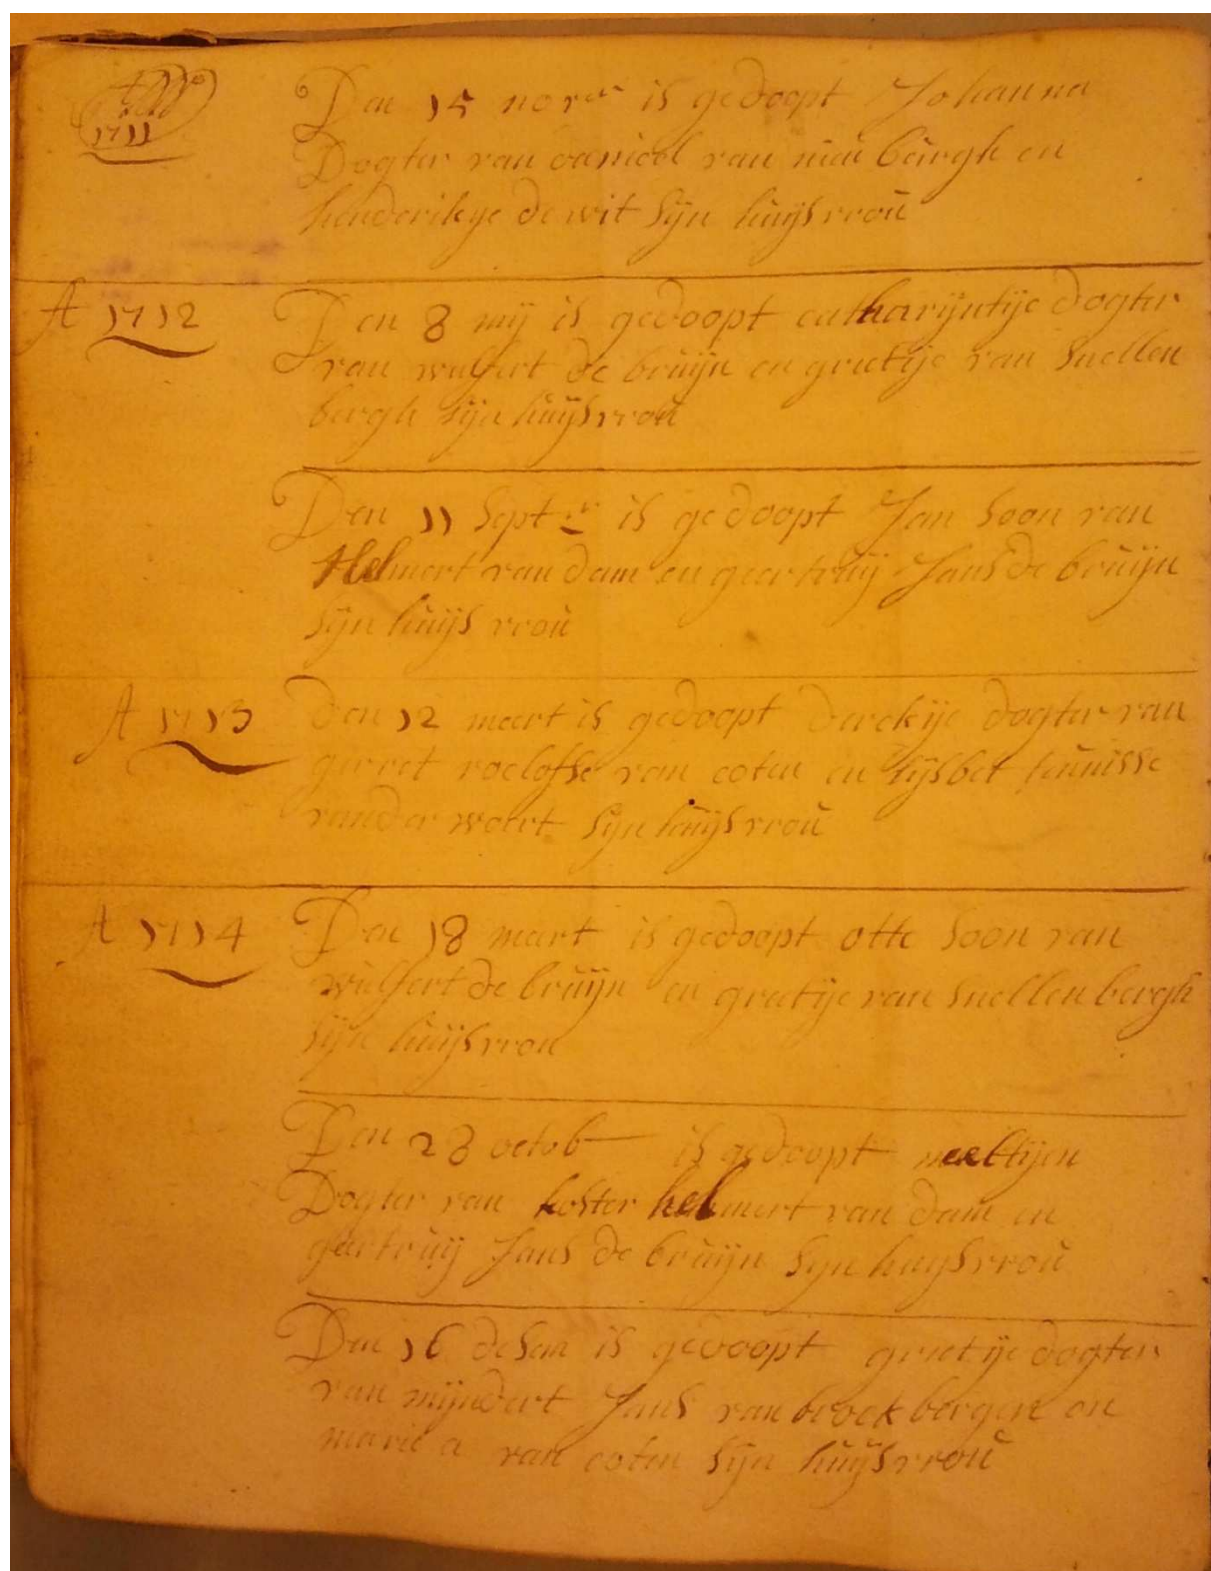 1711
Den 15 novem is gedoopt Johanna
Dogter van daniel van nieu burgh en
henderikye de wit sijn huijsvrou
A 1712
Den 8 mij is gedoopt catharijntije dogter
van wulfert de bruijn en grietije van Snellen
bergh sijn huijsvrou
Den 11 Septer is gedoopt Jan Soon van
Helmert van dam en geertruij Jans de bruijn
sijn huijs vrou
A 1713
Den 12 meert is gedoopt derckije dogter van
gerret roelofse van coten en lijsbet teunisse
vander woert sijn huijsvrou
A 1714
Den 18 mart is gedoopt otte Soon van
wulfert de bruijn en grietije van Snellenbergh
sijn huijsvrou
Den 28 octob is gedoopt neeltijen
Dogter van koster helmert van dam en
geertruij Jans de bruijn sijn huijsvrou
Den 16 desem is gedoopt grietije dogter
van mijndert Jans van broekbergen en
maria van coten sijn huijsvrou